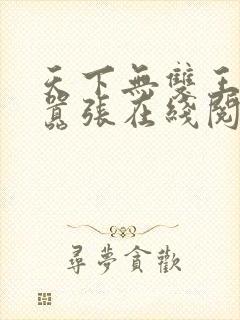 天下無雙王
囂張在綫閱
尋夢貪歡